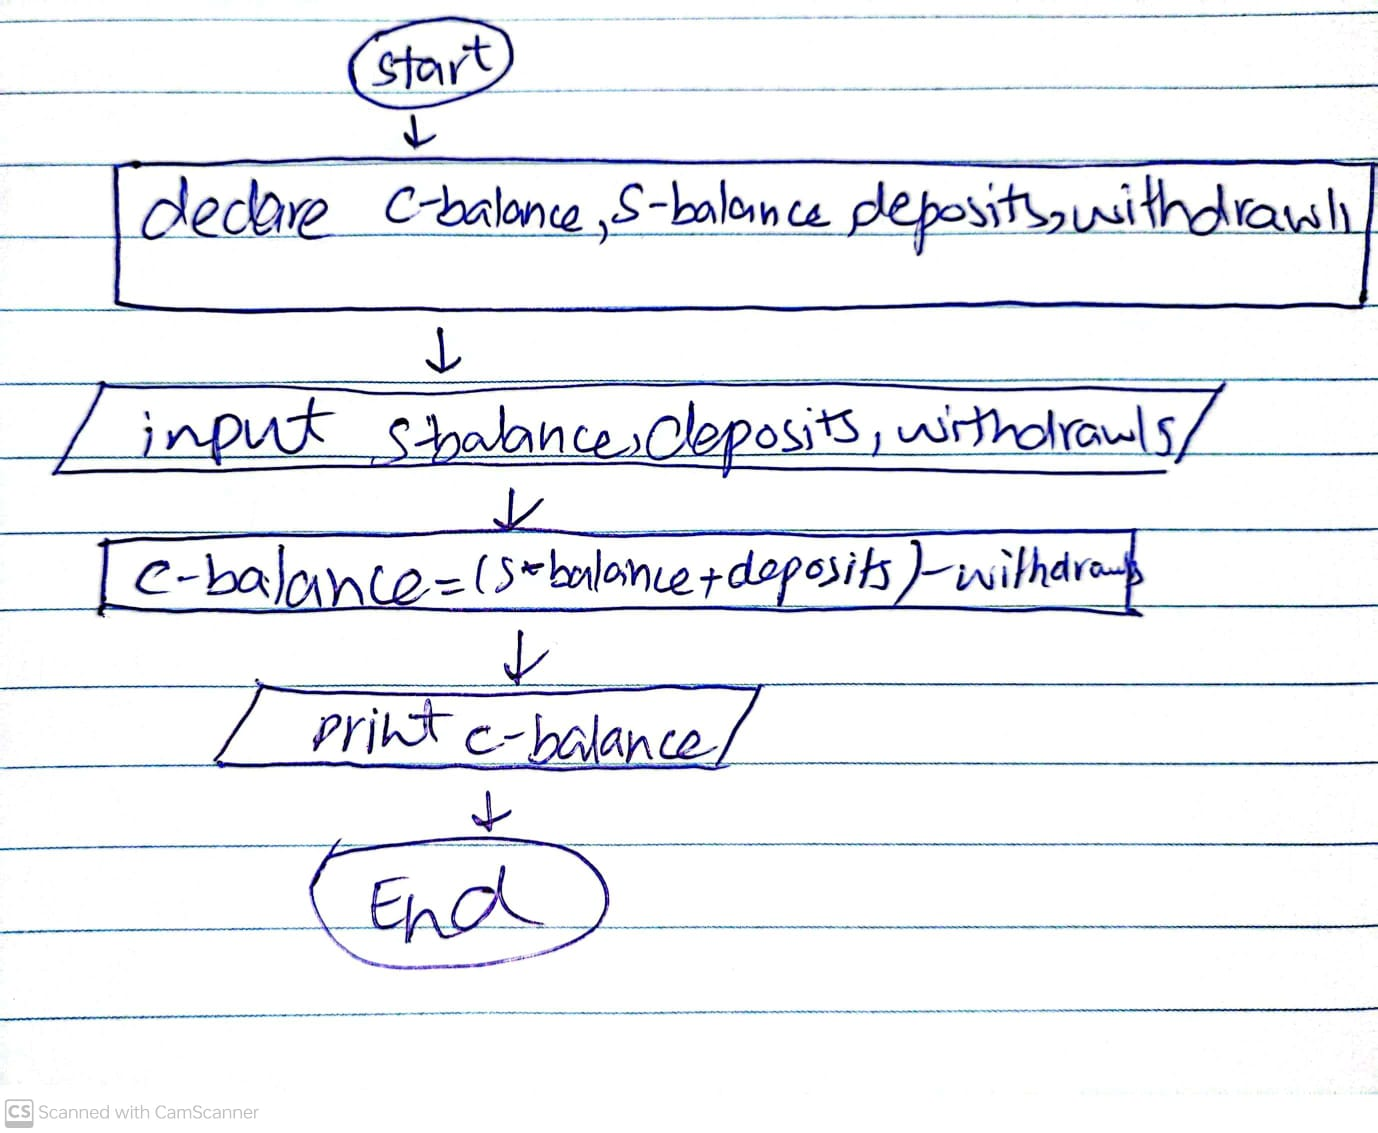 start
declare c-balance, S-balance deposits, withdrawls
input s-balance, deposits, withdrawls
c-balance=(s-balance+deposits)-withdrawls
print c-balance
End
CS Scanned with CamScanner